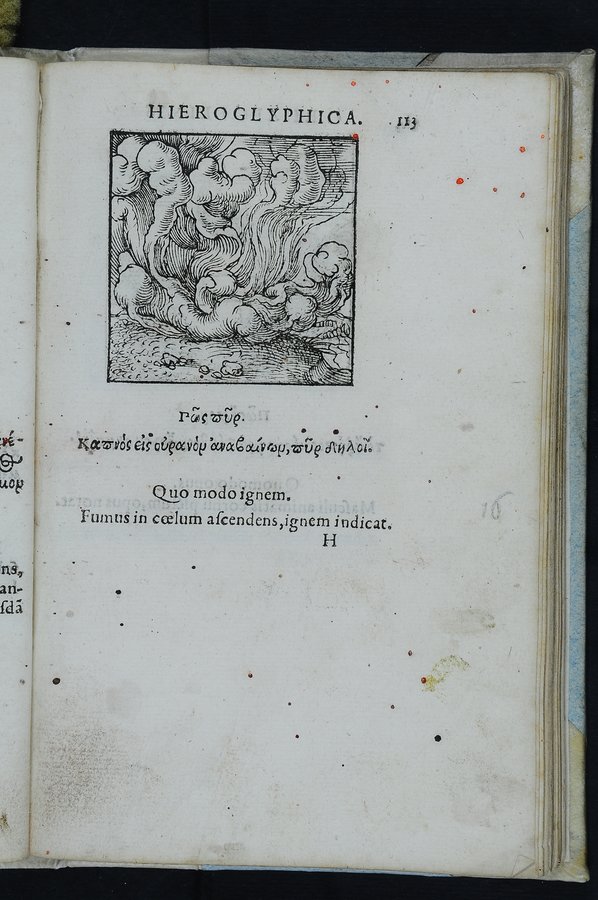 HIEROGLYPHICA. 113
Πῶς πῦρ.
Καπνὸς εἰς οὐρανὸν ἀναβαίνων, πῦρ δηλοῖ.
Quo modo ignem.
Fumus in cœlum aſcendens, ignem indicat.
H
16
ns,
an-
ſdã